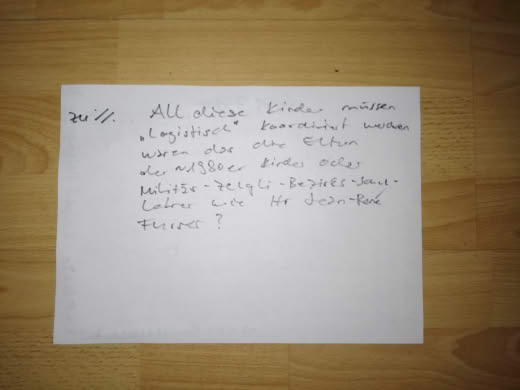 zu //. All diese Kinder müssen
"Logistisch" koordiniert werden
waren das die Eltern
der ~1980er Kinder oder
Militär-Zelgli-Bezirks-Schul-
Lehrer wie Hr Jean-René
Furrer?